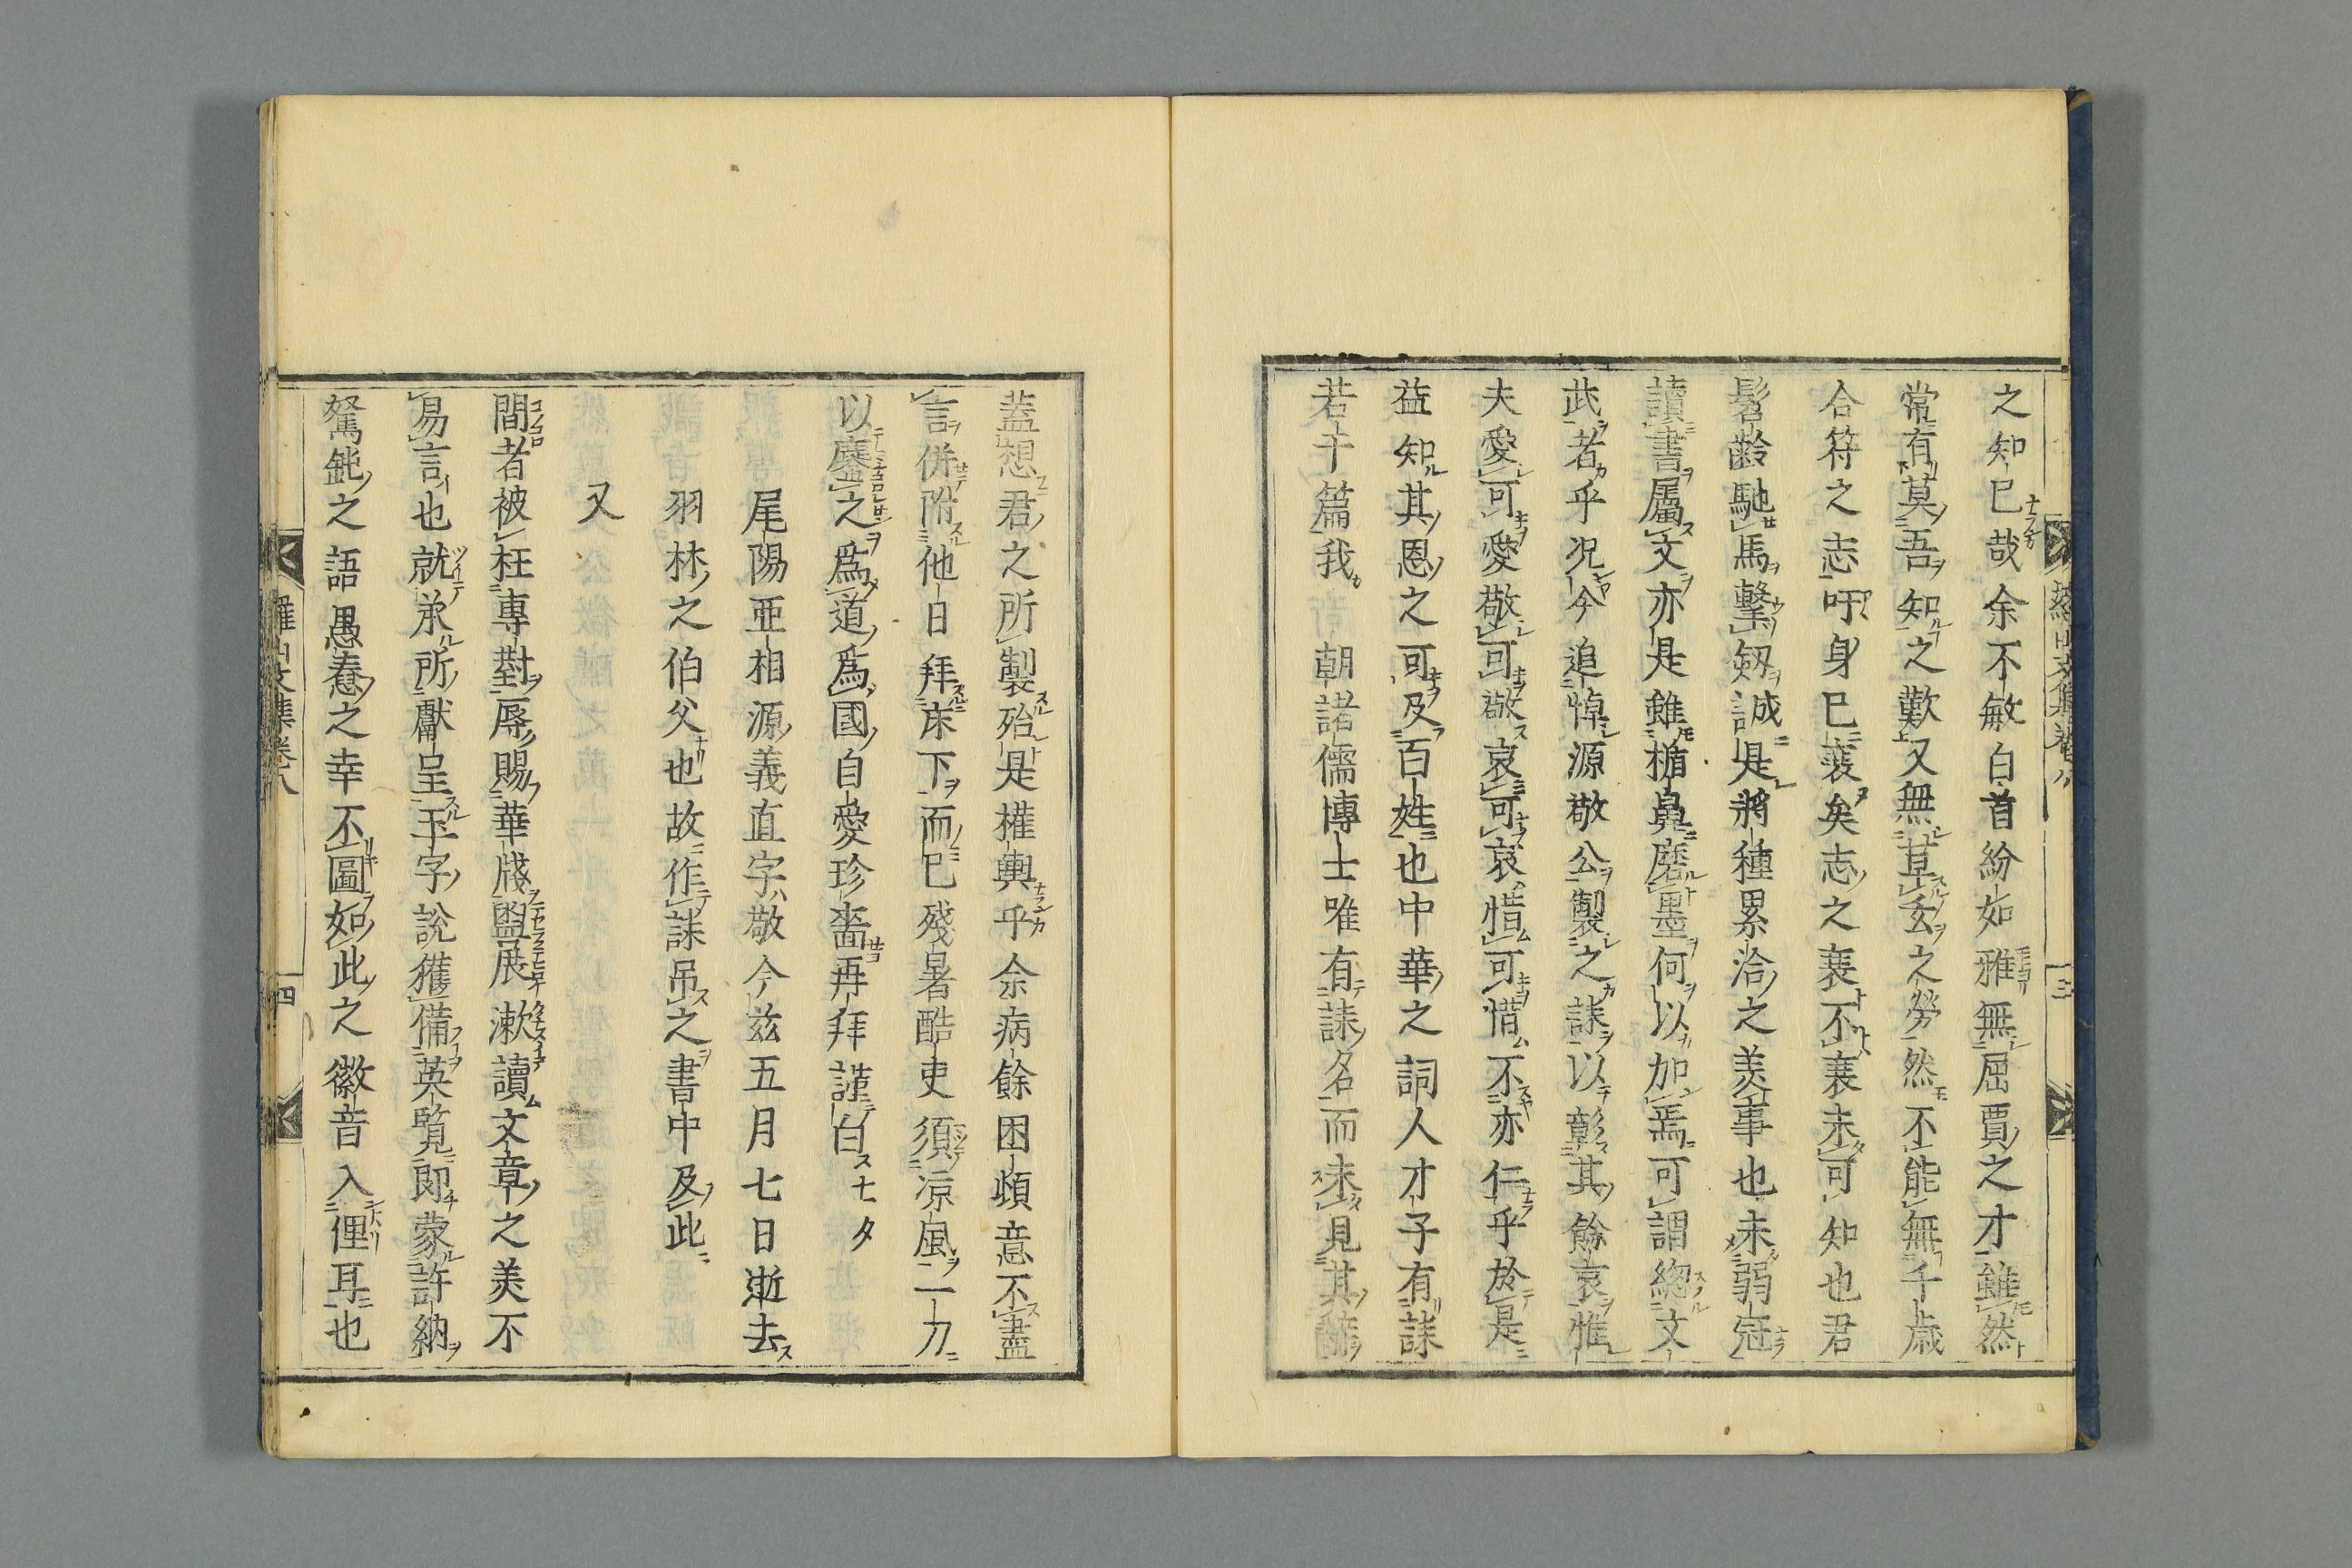 之知已哉余不敏白首紛如雅無屈賈之才雖然
常有莫吾知之歎又無草玄之勞然不能無千歲
合符之志吁身已衰矣志之衰不衰未可知也君
髫齡馳馬擊劒誠是將種累洽之美事也未弱冠
讀書屬文亦是雖楯鼻磨墨何以加焉可謂緫文
武者乎况今追悼源敬公製之誄以彰其餘哀惟
夫愛可愛敬可敬哀可哀惜可惜不亦仁乎於是
益知其恩之可及百姓也中華之詞人才子有誄
若干篇我 朝諸儒博士唯有誄名而未見其辭
蓋想君之所製殆是權輿乎余病餘困頓意不盡
言併附他日拜床下而已殘暑酷吏須凉風一刀
以鏖之爲道爲國自愛珍嗇再拜謹白七夕
尾陽亜相源義直字敬今兹五月七日逝去
羽林之伯父也故作誄吊之書中及此
又
間者被枉專對辱賜華牋盥展漱讀文章之美不
易言也就承所獻呈玉字說獲備英覽即蒙許納
駑鈍之語愚惷之幸不圖如此之徽音入俚耳也
羅山文集卷八
四